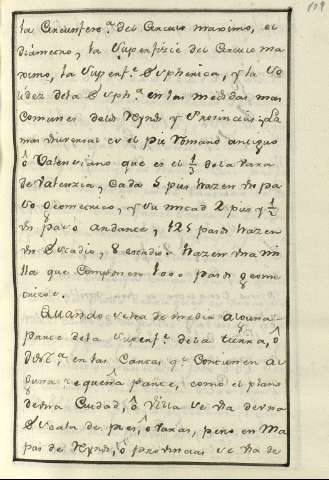 la Circunfere.ª del Circulo maximo, el
diametro, la Superficie del Circulo ma
ximo, la Superf.ᵉ Spherica, y la So
lidez dela Sph.ª en las medidas mas
comunes delos Reynos y Provincias: La
mas universal es el pie Romano antiguo
ô Valenciano que es el 1/3 dela Vara
de Valenzia, Cada 5 pies hazen un pa
so Geometrico, y su mitad 2 pies y 1/2
un paso andante, 125 pasos hazen
un Estadio, 8 estadios hazen una mi
lla que Componen 1000 pasos geome
tricos.
Quando se ha de medir alguna
parte dela Superf.ᵉ dela tierra, ô
en las Cartas q.ᵉ Contienen al
guna pequeña parte, como el plano
de una Ciudad, ô Villa se usa de una
Escala de pies, ô varas, pero en Ma
pas de Reynos, ô provincias se usa de